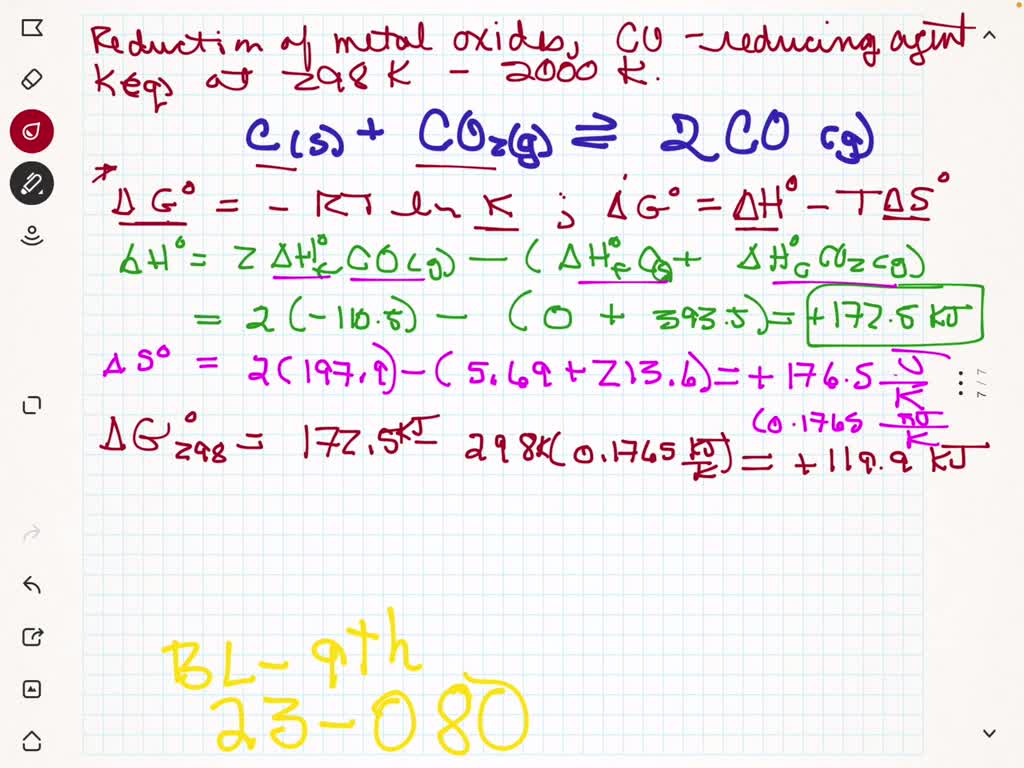 Reduction of metal oxides, CO - reducing agent
Keq at 298 K - 2000 K.
C(s) + CO₂(g) ⇌ 2CO (g)
* ΔG° = - RT ln K ; ΔG° = ΔH° - TΔS°
ΔH° = 2 ΔH°f CO(g) - (ΔH°f C(s) + ΔH°f CO₂(g))
= 2(-110.5) - (0 + 393.5) = +172.5 KJ
ΔS° = 2(197.9) - (5.69 + 213.6) = + 176.5 J/K
(0.1765 KJ/K
ΔG°298 = 172.5 KJ - 298K(0.1765 KJ/K) = + 119.9 KJ
7/7
BL - 9th
23-080